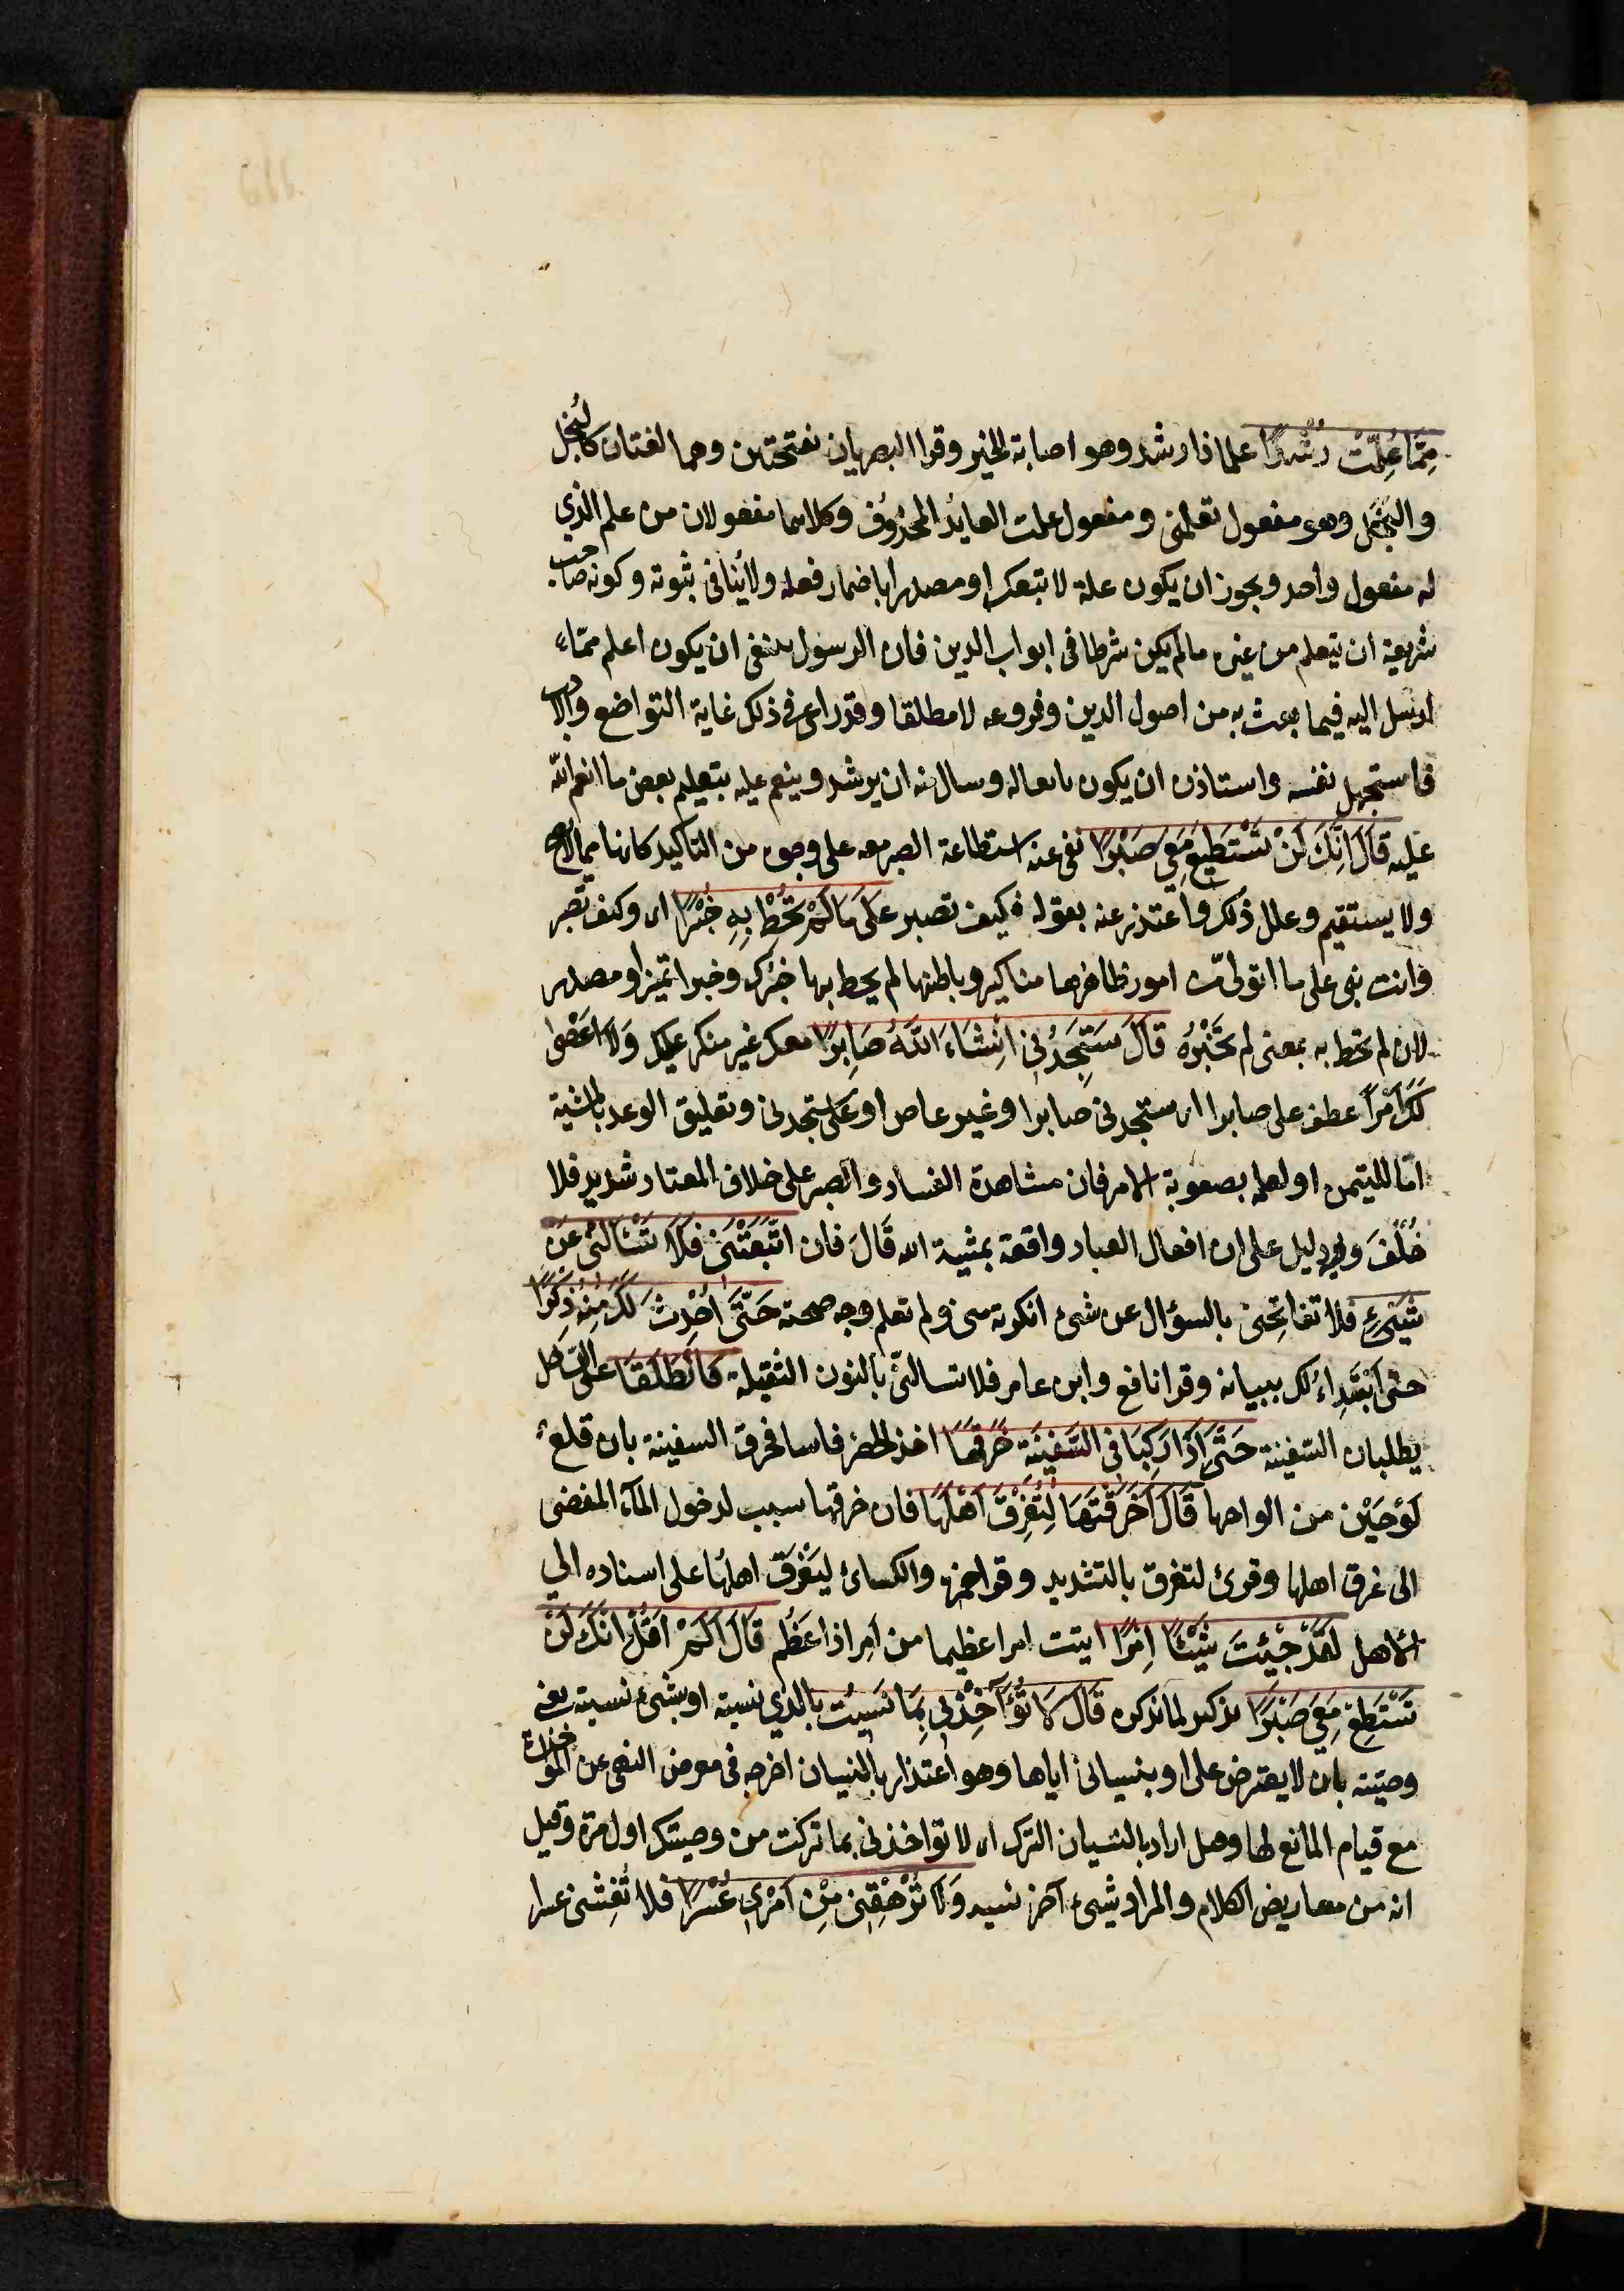 مِمَّا عُلِّمْتَ رُشْدًا علما ذا رشد وهو اصابة الخير وقرا البصريان بفتحتين وهما لغتان كالبُخل
والبَخَل وهو مفعول تعلمنى ومفعول علمت العايد المحذوف وكلاهما مفعولان من علم الذي
له مفعول واحد ويجوز ان يكون علة لاتبعك او مصدرا باضمار فعله ولا ينافى نبوته وكونه صاحب
شريعة ان يتعلم من غيره مالم يكن شرطا فى ابواب الدين فان الرسول ينبغى ان يكون اعلم ممّن
ارسل اليه فيما بعث به من اصول الدين وفروعه لا مطلقا وقد راعى فى ذلك غاية التواضع والادب
فاستجهل نفسه واستاذن ان يكون تابعا له وسال منه ان يرشده وينعم عليه بتعليم بعض ما انعم الله
عليه قَالَ اِنَّكَ لَنْ تَسْتَطِيعَ مَعِيَ صَبْرًا نفى عنه استطاعة الصبر معه على وجوه من التاكيد كانها مما لا يصح
ولا يستقيم وعلل ذلك واعتذر عنه بقوله وكيف تصبر عَلَى مَا لَمْ تُحِطْ بِهِ خُبْرًا اى وكيف تصبر
وانت نبى على ما اتولى من امور ظاهرها مناكير وباطنها لم يحط بها خبرك وخبرا تميز او مصدر
لان لم تحط به بمعنى لم تخْبُرْهُ قَالَ سَتَجِدُنِى اِنْشَاءَ اللّٰهُ صَابِرًا معك غير منكر عليك وَلَا اَعْصِى
لَكَ اَمْرًا عطف على صابرا اى ستجدنى صابرا وغير عاص او على ستجدنى وتعليق الوعد بالمشية
امّا للتيمن او لعلمه بصعوبة الامر فان مشاهدة الفساد والصبر على خلاف المعتاد شديد فلا
خُلْفَ وفيه دليل على ان افعال العباد واقعة بمشية الله قَالَ فان اتَّبَعْتَنِى فَلَا تَسْاَلْنِى عَنْ
شَيْئٍ فلا تفاتحنى بالسؤال عن شىء انكرته منى ولم تعلم وجه صحته حَتَّى اُحْدِثَ لَكَ مِنْهُ ذِكْرًا
حتى ابتداءَ لك ببيانه وقرا نافع وابن عامر فلا تسالنّى بالنون الثقيلة فَانْطَلَقَا على الساحل
يطلبان السفينة حَتَّى اِذَا رَكِبَا فى السَّفِينَةِ خَرَقَهَا اخذ الخضر فاسا فخرق السفينة بان قلع
لَوْحَيْن من الواحها قَالَ اَخَرَقْتَهَا لِتُغْرِقَ اَهْلَهَا فان خرقها سبب لدخول المآء المفضى
الى غرق اهلها وقرئ لتغرق بالتشديد وقرا حمزه والكسائ ليَغْرَقَ اهلُها على اسناده الي
الاهل لَقَدْ جِئْتَ شَيْئًا اِمْرًا اتيت امرا عظيما من اَمِرَ اذا عَظُمَ قَالَ اَلَمْ اَقُلْ اِنَّكَ لَنْ
تَسْتَطِيعَ مَعِيَ صَبْرًا تذكير لما ذكره قَالَ لَا تُؤَآخِذْنِى بِمَا نَسِيتُ بالذي نسيته او بشىء نسيته يعنى
وصيّته بان لا يعترض عليه او بنسيانى اياها وهو اعتذار بالنسيان اخرجه فى معرض النهى عن المؤاخذة
مع قيام المانع لها وقيل اراد بالنسيان الترك اى لا تؤاخذنى بما تركت من وصيتك اول مرة وقيل
انه من معاريض الكلام والمراد شىء آخر نسيه وَلَا تُرْهِقْنِى مِنْ اَمْرِى عُسْرًا فلا تُغْشِنى عسرا